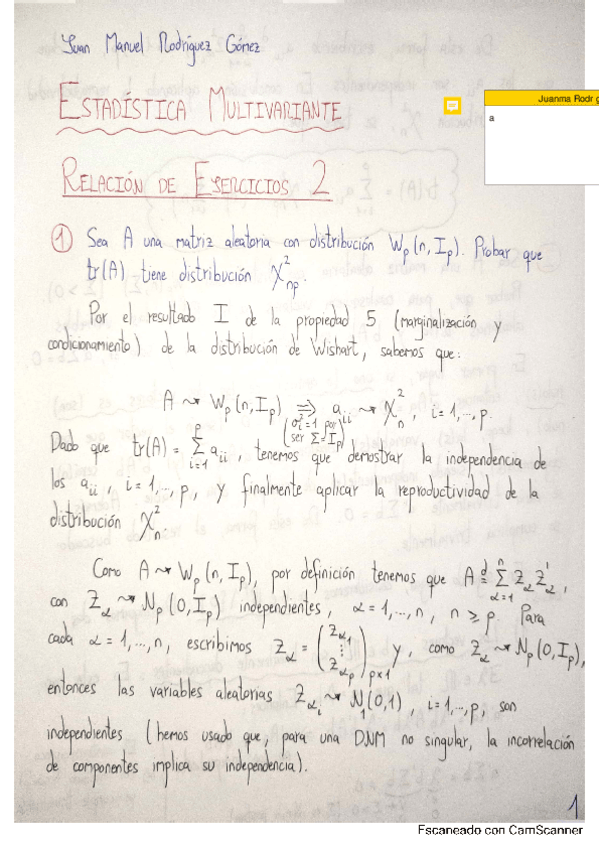 Juan Manuel Rodríguez Gómez
ESTADÍSTICA MULTIVARIANTE
Juanma Rodrig
a
RELACIÓN DE EJERCICIOS 2
① Sea A una matriz aleatoria con distribución W_p(n, I_p). Probar que
tr(A) tiene distribución χ²_{np}.
Por el resultado I de la propiedad 5 (marginalización y
condicionamiento) de la distribución de Wishart, sabemos que:
A ⇝ W_p(n, I_p) ⟹ a_{ii} ⇝ χ²_n, i=1,...,p.
(σ_i²=1 por
ser Σ=I_p)
Dado que tr(A) = Σ_{i=1}^{p} a_{ii}, tenemos que demostrar la independencia de
los a_{ii}, i=1,...,p, y finalmente aplicar la reproductividad de la
distribución χ²_n.
Como A ⇝ W_p(n, I_p), por definición tenemos que A =^d Σ_{α=1}^{n} Z_α Z_α',
con Z_α ⇝ N_p(0, I_p) independientes, α=1,...,n, n ≥ p. Para
cada α=1,...,n, escribimos Z_α = (Z_{α_1} ⋮ Z_{α_p})_{p×1} y, como Z_α ⇝ N_p(0, I_p),
entonces las variables aleatorias Z_{α_i} ⇝ N_1(0,1), i=1,...,p, son
independientes (hemos usado que, para una DNM no singular, la incorrelación
de componentes implica su independencia).
1
Escaneado con CamScanner